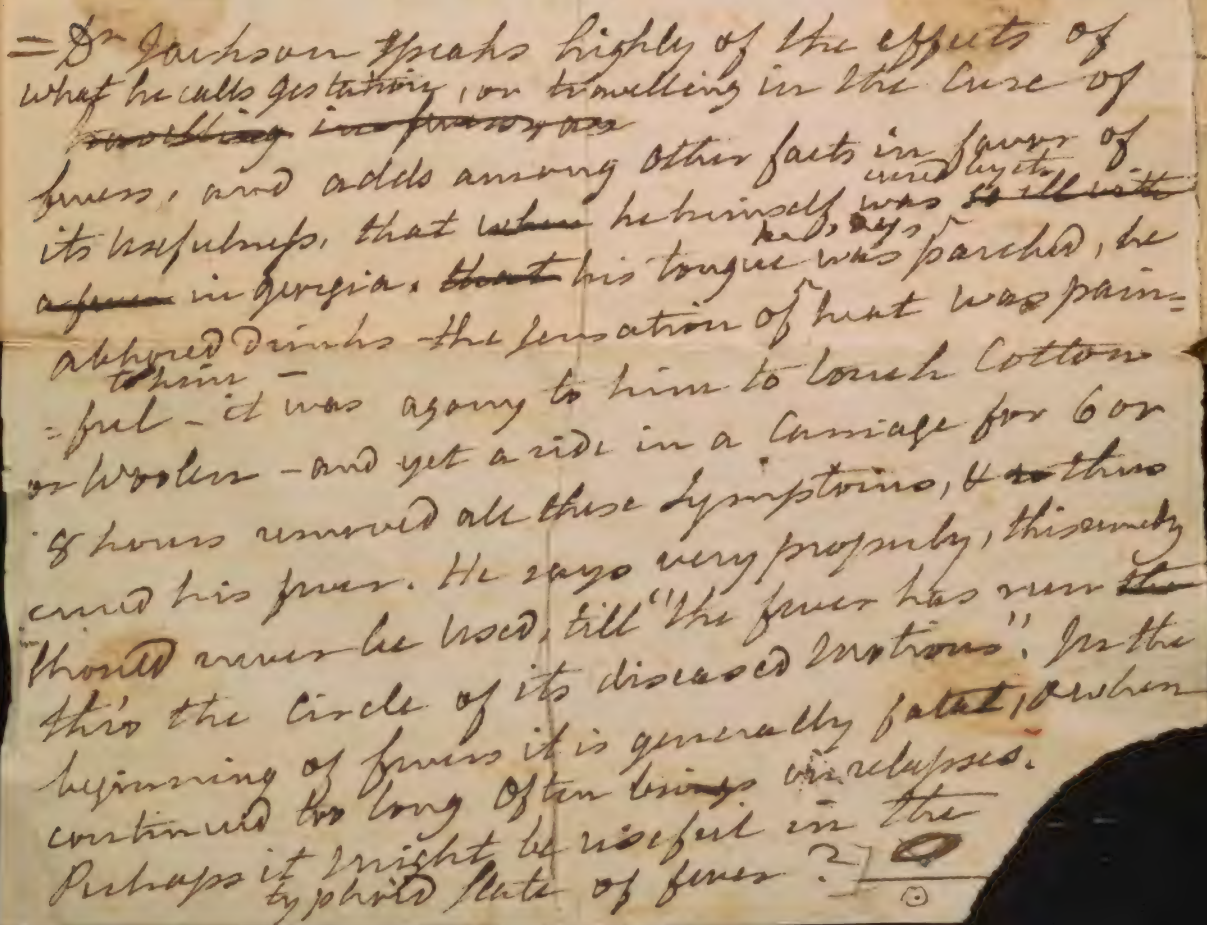 = Dr Jackson speaks highly of the effects of
what he calls gestation, or travelling in the cure of
travelling in
fevers, and adds among other facts in favor of
cured by it
its usefulness, that when he himself was so ill with
he says
a fever in georgia. that his tongue was parched, he
abhored drinks - the sensation of heat was pain=
to him -
=ful - it was agony to him to touch Cotton
or Woolen - and yet a ride in a Carriage for 6 or
8 hours removed all these Symptoms, & thus
cured his fever. He says very properly, this remedy
should never be used, till "the fever has run the
thro the Circle of its diseased motions". In the
beginning of fevers it is generally fatal, & when
continued too long often brings on relapses.
Perhaps it might be useful in the
typhoid state of fever ?